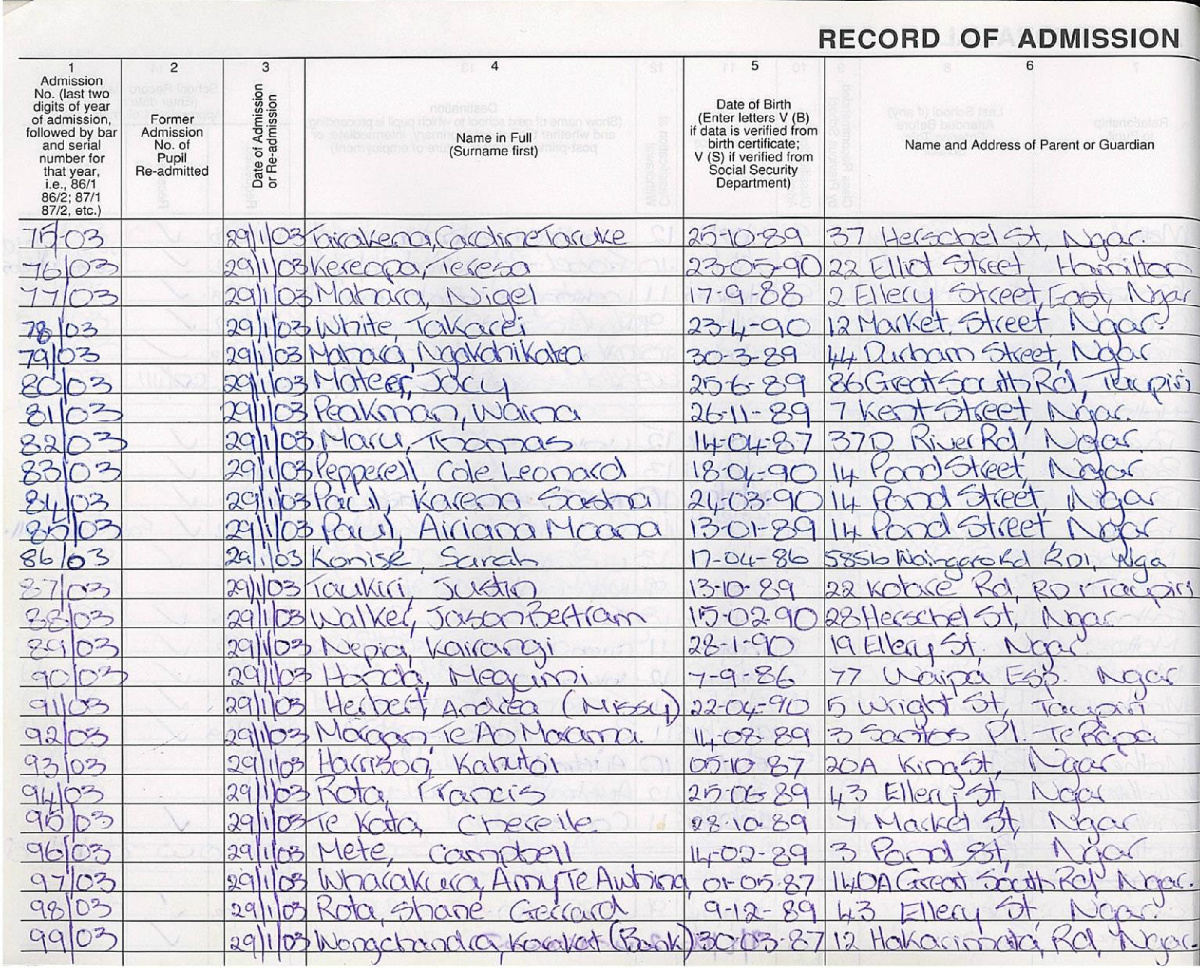 RECORD OF ADMISSION
1 2 3 4 5 6
Admission No. (last two digits of year of admission, followed by bar and serial number for that year, i.e., 86/1 86/2; 87/1 87/2, etc.)
Former Admission No. of Pupil Re-admitted
Date of Admission or Re-admission
Name in Full (Surname first)
Date of Birth (Enter letters V (B) if data is verified from birth certificate; V (S) if verified from Social Security Department)
Name and Address of Parent or Guardian
75-03 29/1/03 Tairakena, Caroline Taruke 25-10-89 37 Herschel St, Ngar.
76/03 29/1/03 Kereopa, Teresa 23-05-90 22 Elliot Street Hamilton
77/03 29/1/03 Mahara, Nigel 17-9-88 2 Ellery Street, East, Ngar
78/03 29/1/03 White, Takarei 23-4-90 12 Market Street, Ngar.
79/03 29/1/03 Mahara, 30-3-89 44 Durham Street, Ngar
80/03 29/1/03 Mateer, 25-6-89 86 Great South Rd, Taupiri
81/03 29/1/03 Peakman, Waina 26-11-89 7 Kent Street, Ngar.
82/03 29/1/03 Maru, Thomas 14-04-87 37D River Rd, Ngar
83/03 29/1/03 Pepperell, Cole Leonard 18-04-90 14 Pond Street, Ngar
84/03 29/1/03 Paul, Karena 14 Pond Street, Ngar
85/03 29/1/03 Paul, Airiana Moana 13-01-89 14 Pond Street Ngar
86/03 29/1/03 Konise, Sarah 17-04-86 585b RD1, Nga
87/03 29/1/03 Taukiri, Justin 13-10-89 22 Rd, RD1 Taupiri
88/03 29/1/03 Walker, Jason Bertram 15-02-90 28 Herschel St, Ngar.
89/03 29/1/03 Nepia, Kairangi 28-1-90 19 Ellery St, Ngar.
90/03 29/1/03 Honda, Megumi 7-9-86 77 Waipa Esp. Ngar
91/03 29/1/03 Herbert, Andrea (Missy) 22-04-90 5 Wright St, Taupiri
92/03 29/1/03 Morgan, Te Ao Marama. 14-08-89 3 Santos Pl. Te Rapa
93/03 29/1/03 Harrison, Kahutoi 05-10-87 20A King St, Ngar
94/03 29/1/03 Rota, Francis 25-06-89 43 Ellery St, Ngar
95/03 29/1/03 Te Kata, Cherelle. 28-10-89 7 Market St, Ngar
96/03 29/1/03 Mete, Campbell 14-02-89 3 Pond St, Ngar
97/03 29/1/03 Wharakura, Amy Te Awhina 01-05-87 140A Great South Rd, Ngar.
98/03 29/1/03 Rota, Shane Gerrard 9-12-89 43 Ellery St, Ngar
99/03 29/1/03 Wongchandra, Korakot (Bank) 30-03-87 12 Hakarimata, Rd, Ngar.